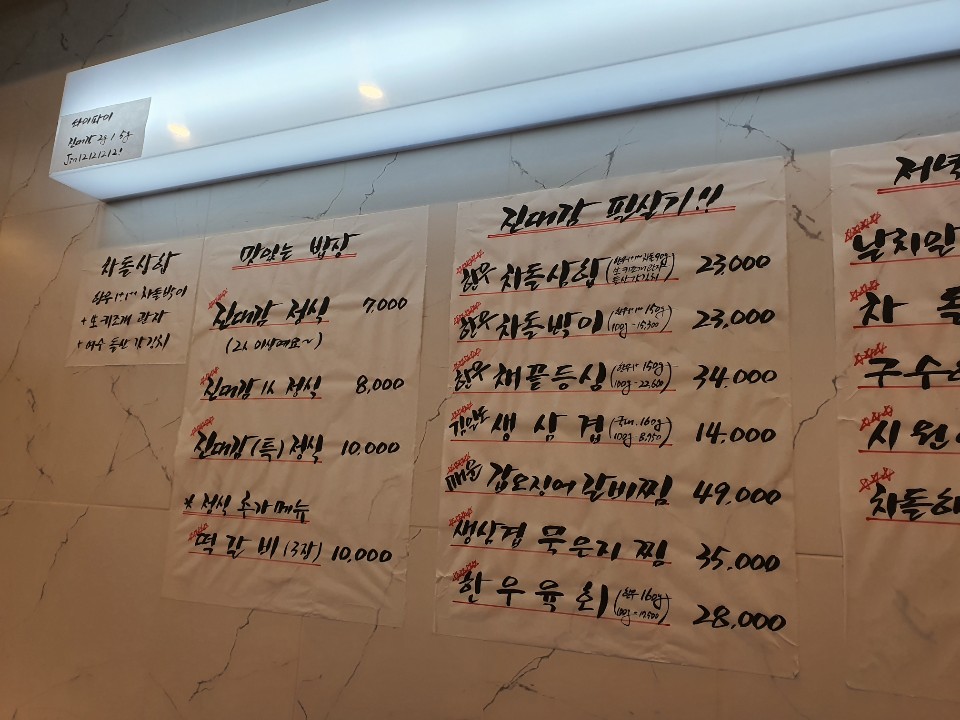 와이파이
진대감 2g / 5g
Jin12121212!
차돌삼합
한우 1++ 차돌박이
+ 생키조개 관자
+ 여수 돌산 갓김치
맛있는 밥상
진대감 정식 7,000
(2人 이상예요~)
진대감 1人 정식 8,000
진대감(특)정식 10,000
* 정식 추가 메뉴
떡갈비(3장) 10,000
진대감 필살기!!
한우 차돌삼합 23,000
한우 차돌박이 (한우1++ 150g 100g-15,300) 23,000
한우 채끝등심 (한우1++ 150g 100g-22,600) 34,000
생삼겹 (국내.160g 100g 8,750) 14.000
매운 갑오징어 갈비찜 49,000
생삼겹 묵은지 찜 35,000
한우육회 (한우 160g 100g-17,500) 28,000
저녁
날치알
차돌
구수
시원
차돌